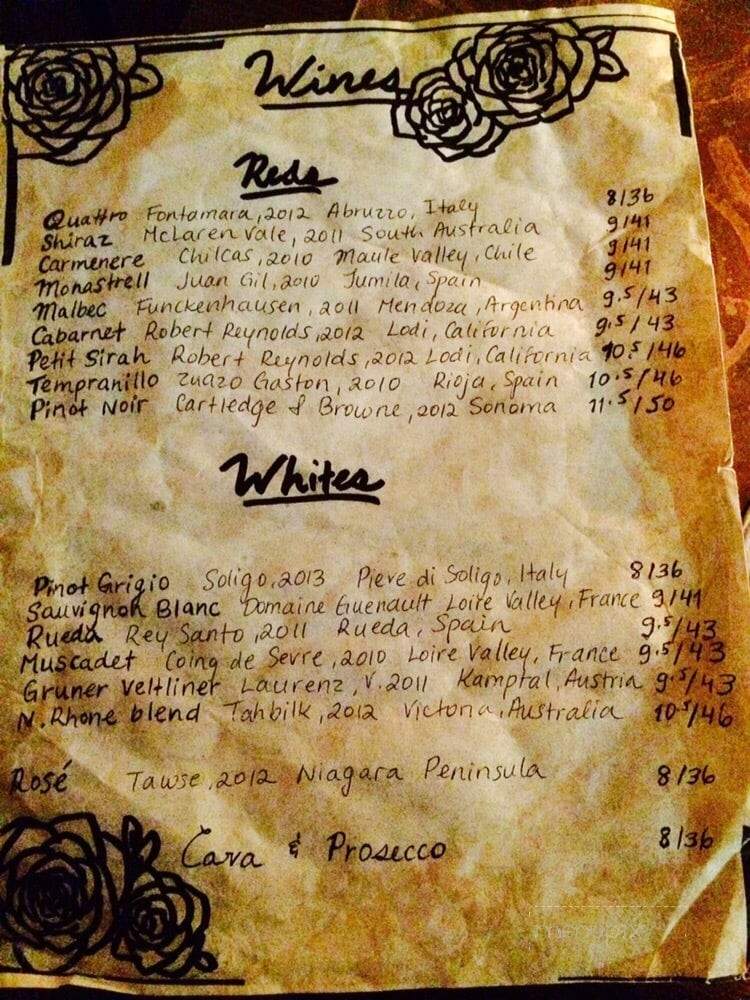 Wines
Reds
Quattro Fontamara, 2012 Abruzzo, Italy 8/36
Shiraz McLaren Vale, 2011 South Australia 9/41
Carmenere Chilcas, 2010 Maule Valley, Chile 9/41
Monastrell Juan Gil, 2010 Jumila, Spain 9/41
Malbec Funckenhausen, 2011 Mendoza, Argentina 9.5/43
Cabarnet Robert Reynolds, 2012 Lodi, California 9.5/43
Petit Sirah Robert Reynolds, 2012 Lodi, California 10.5/46
Tempranillo Zuazo Gaston, 2010 Rioja, Spain 10.5/46
Pinot Noir Cartledge & Browne, 2012 Sonoma 11.5/50
Whites
Pinot Grigio Soligo, 2013 Pieve di Soligo, Italy 8/36
Sauvignon Blanc Domaine Guenault Loire Valley, France 9/41
Rueda Rey Santo, 2011 Rueda, Spain 9.5/43
Muscadet Coing de Sevre, 2010 Loire Valley, France 9.5/43
Gruner Veltliner Laurenz, V. 2011 Kamptal, Austria 9.5/43
N. Rhone blend Tahbilk, 2012 Victoria, Australia 10.5/46
Rosé Tawse, 2012 Niagara Peninsula 8/36
Cava & Prosecco 8/36